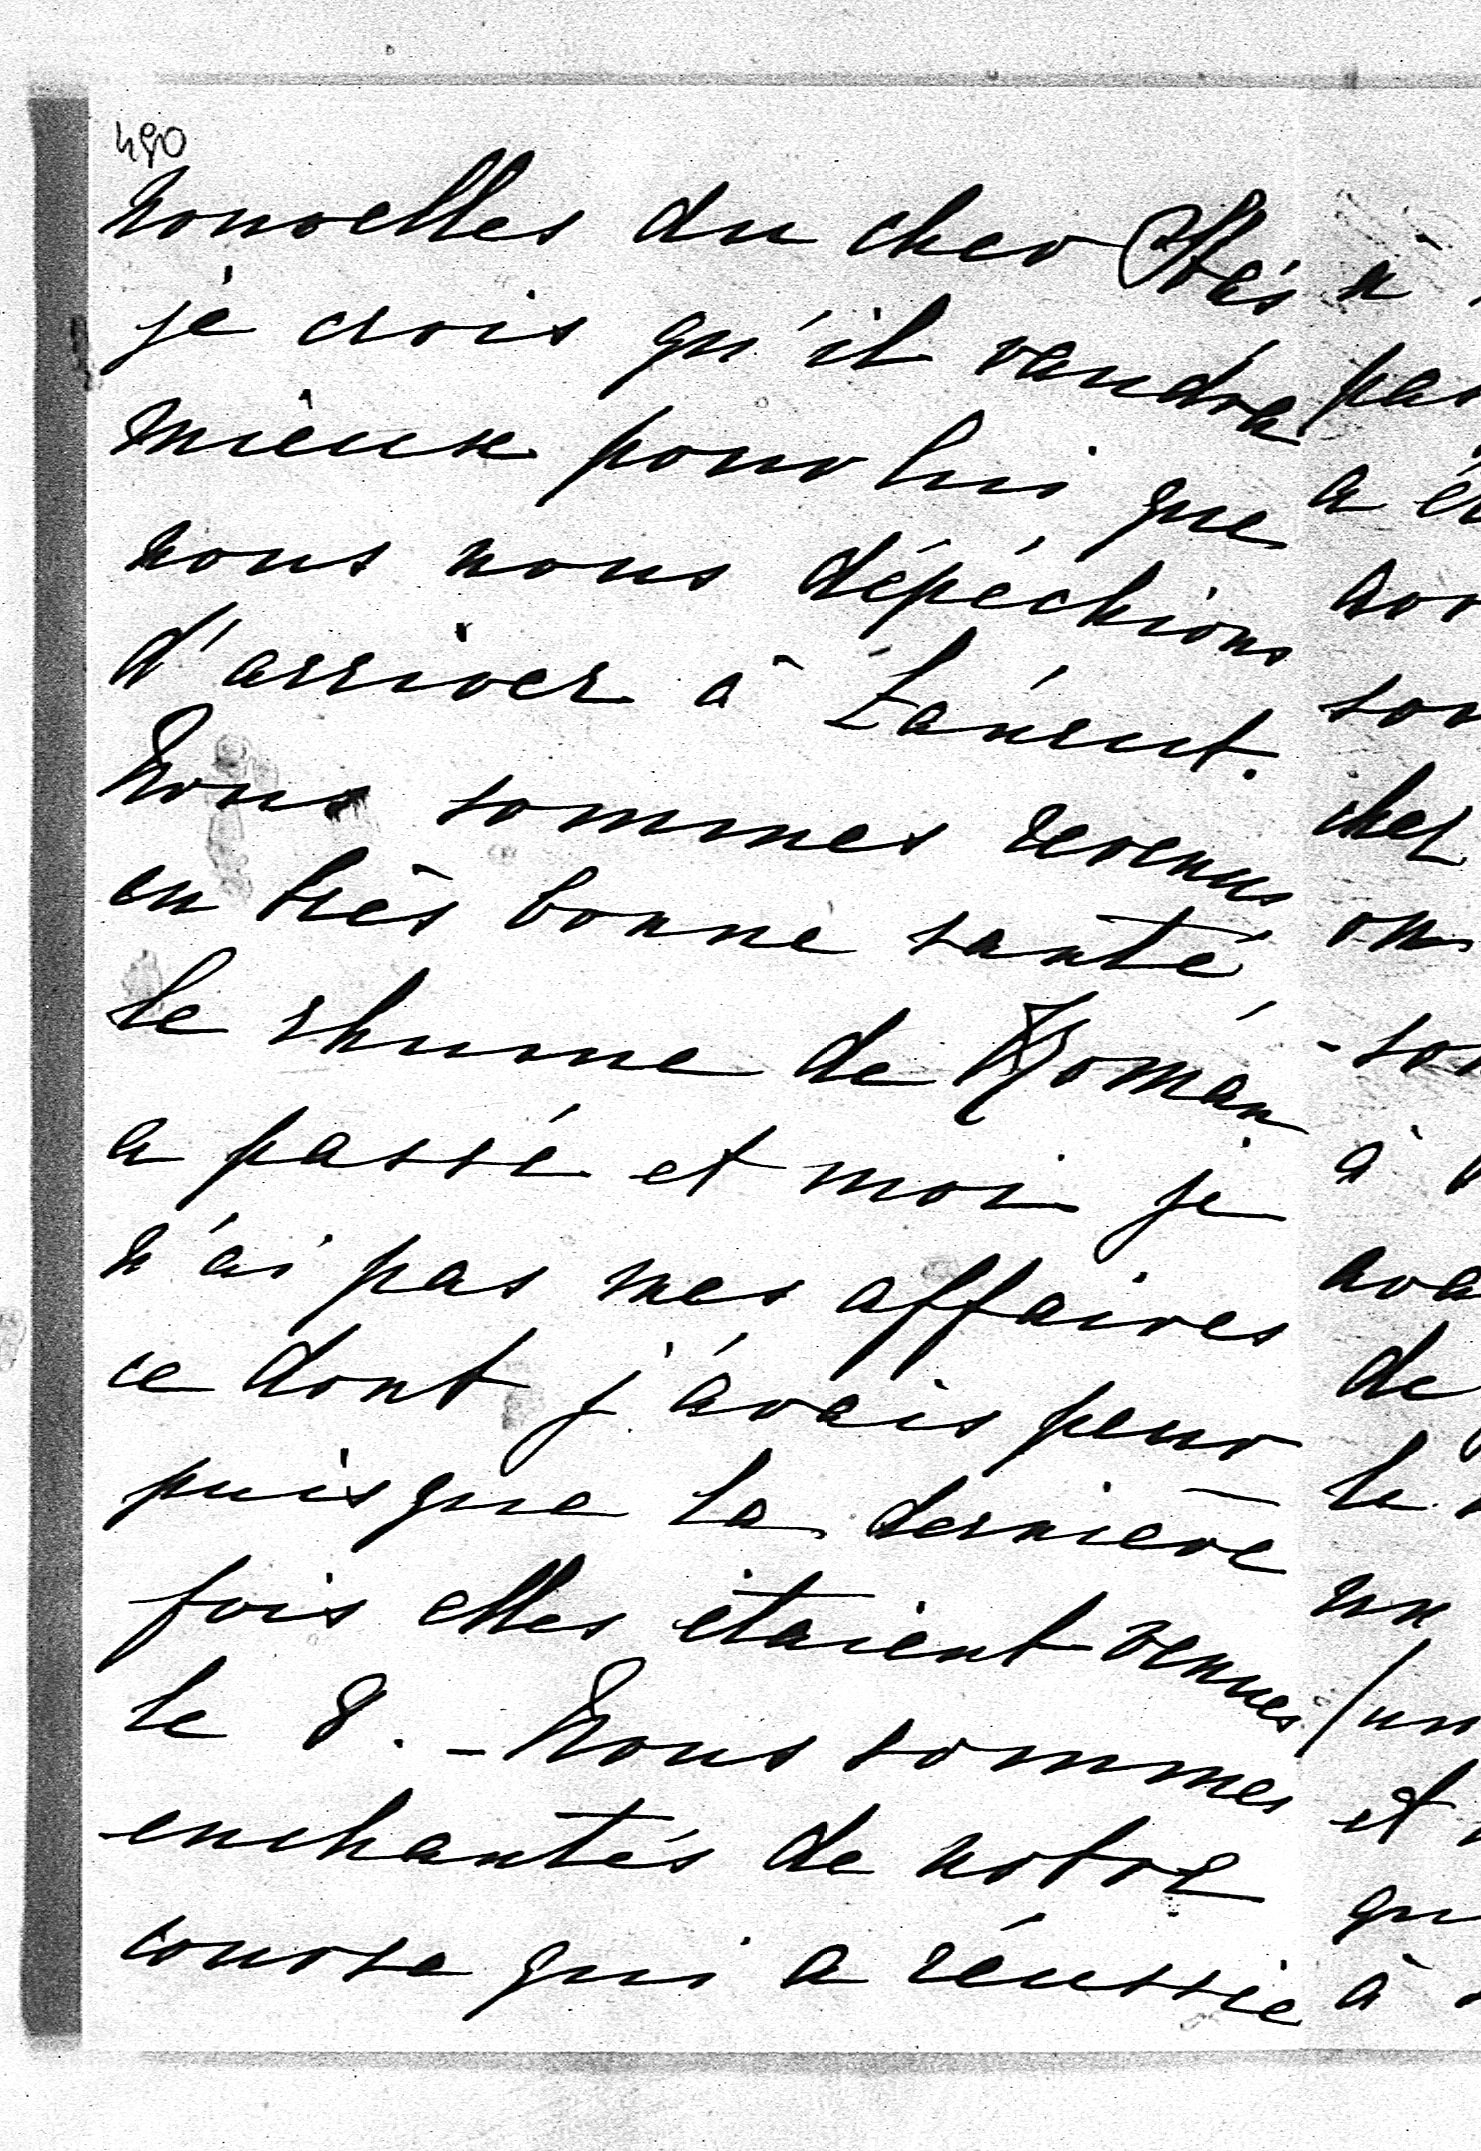 490
nouvelles du cher
je crois qu'il vaudra
mieux pour lui que
nous nous dépéchions
d'arriver à Łańcut.
Nous sommes revenus
en très bonne santé,
le rhume de Roman
a passé et moi je
n'ai pas mes affaires
ce dont j'avais peur
puisque la dernière
fois elles étaient venues
le 8. - Nous sommes
enchantés de notre
course qui a réussie
à
pas
a
son
chez
on
- son
à
de
le
un
et
à